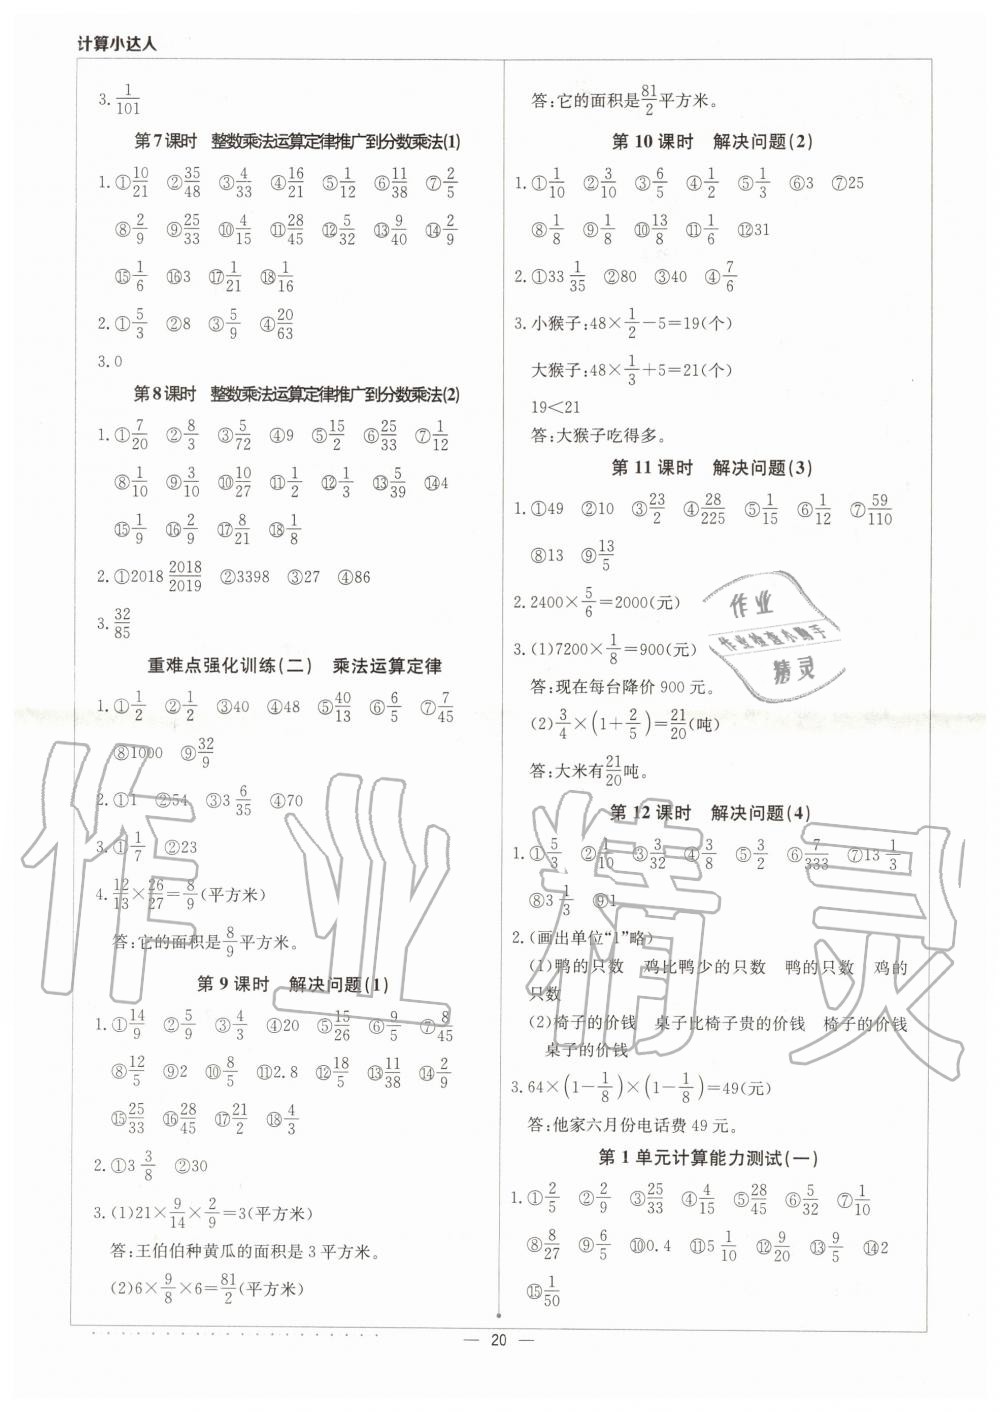 计算小达人
3. 1/101
第7课时 整数乘法运算定律推广到分数乘法(1)
1. ①10/21 ②35/48 ③4/33 ④16/21 ⑤1/12 ⑥11/38 ⑦2/5
⑧2/9 ⑨25/33 ⑩4/15 ⑪28/45 ⑫5/32 ⑬9/40 ⑭2/9
⑮1/6 ⑯3 ⑰1/21 ⑱1/16
2. ①5/3 ②8 ③5/9 ④20/63
3. 0
第8课时 整数乘法运算定律推广到分数乘法(2)
1. ①7/20 ②8/3 ③5/72 ④9 ⑤15/2 ⑥25/33 ⑦1/12
⑧1/10 ⑨3/10 ⑩10/27 ⑪1/2 ⑫1/3 ⑬5/39 ⑭4
⑮1/9 ⑯2/9 ⑰8/21 ⑱1/8
2. ①2018 2018/2019 ②3398 ③27 ④86
3. 32/85
重难点强化训练(二) 乘法运算定律
1. ①1/2 ②1/2 ③40 ④48 ⑤40/13 ⑥6/5 ⑦7/45
⑧1000 ⑨32/9
2. ①1 ②54 ③3 6/35 ④70
3. ①1/7 ②23
4. 12/13×26/27=8/9(平方米)
答:它的面积是8/9平方米。
第9课时 解决问题(1)
1. ①14/9 ②5/9 ③4/3 ④20 ⑤15/26 ⑥9/5 ⑦8/45
⑧12/5 ⑨2 ⑩8/5 ⑪2.8 ⑫18/5 ⑬11/38 ⑭2/9
⑮25/33 ⑯28/45 ⑰21/2 ⑱4/3
2. ①3 3/8 ②30
3. (1)21×9/14×2/9=3(平方米)
答:王伯伯种黄瓜的面积是3平方米。
(2)6×9/8×6=81/2(平方米)
答:它的面积是81/2平方米。
第10课时 解决问题(2)
1. ①1/10 ②3/10 ③6/5 ④1/2 ⑤1/3 ⑥3 ⑦25
⑧1/8 ⑨1/8 ⑩13/8 ⑪1/6 ⑫31
2. ①33 1/35 ②80 ③40 ④7/6
3. 小猴子:48×1/2-5=19(个)
大猴子:48×1/3+5=21(个)
19<21
答:大猴子吃得多。
第11课时 解决问题(3)
1. ①49 ②10 ③23/2 ④28/225 ⑤1/15 ⑥1/12 ⑦59/110
⑧13 ⑨13/5
2. 2400×5/6=2000(元)
3. (1)7200×1/8=900(元)
答:现在每台降价900元。
(2)3/4×(1+2/5)=21/20(吨)
答:大米有21/20吨。
第12课时 解决问题(4)
1. ①5/3 ②1/10 ③3/32 ④3/8 ⑤3/2 ⑥7/333 ⑦13 1/3
⑧3 1/3 ⑨1
2. (画出单位“1”略)
(1)鸭的只数 鸡比鸭少的只数 鸭的只数 鸡的
只数
(2)椅子的价钱 桌子比椅子贵的价钱 椅子的价钱
桌子的价钱
3. 64×(1-1/8)×(1-1/8)=49(元)
答:他家六月份电话费49元。
第1单元计算能力测试(一)
1. ①2/5 ②2/9 ③25/33 ④4/15 ⑤28/45 ⑥5/32 ⑦1/10
⑧8/27 ⑨6/5 ⑩0.4 ⑪5 1/10 ⑫9/20 ⑬9/5 ⑭2
⑮1/50
— 20 —
作业精灵
作业
作业检查小助手
精灵